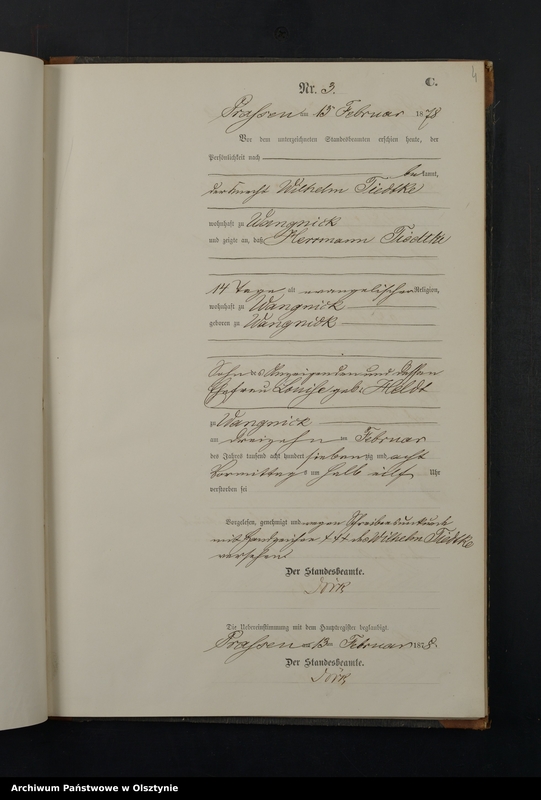 4
C.
Nr. 3.
Prassen am 15 Februar 1878
Vor dem unterzeichneten Standesbeamten erschien heute, der
Persönlichkeit nach
bekannt,
der Knecht Wilhelm Tiedtke
wohnhaft zu Wangnick
und zeigte an, daß Herrmann Tiedtke
14 Tage alt evangelischer Religion,
wohnhaft zu Wangnick
geboren zu Wangnick
Sohn des Anzeigenden und dessen
Ehefrau Louise geb. Heldt
zu Wangnick
am dreizehn ten Februar
des Jahres tausend acht hundert siebenzig und acht
Vormittags um halb eilf Uhr
verstorben sei
Vorgelesen, genehmigt und wegen Schreibensunkunde
mit Handzeichen +++ des Wilhelm Tiedtke
versehen.
Der Standesbeamte.
Die Uebereinstimmung mit dem Hauptregister beglaubigt.
Prassen am Februar 1878.
Der Standesbeamte.
Archiwum Państwowe w Olsztynie